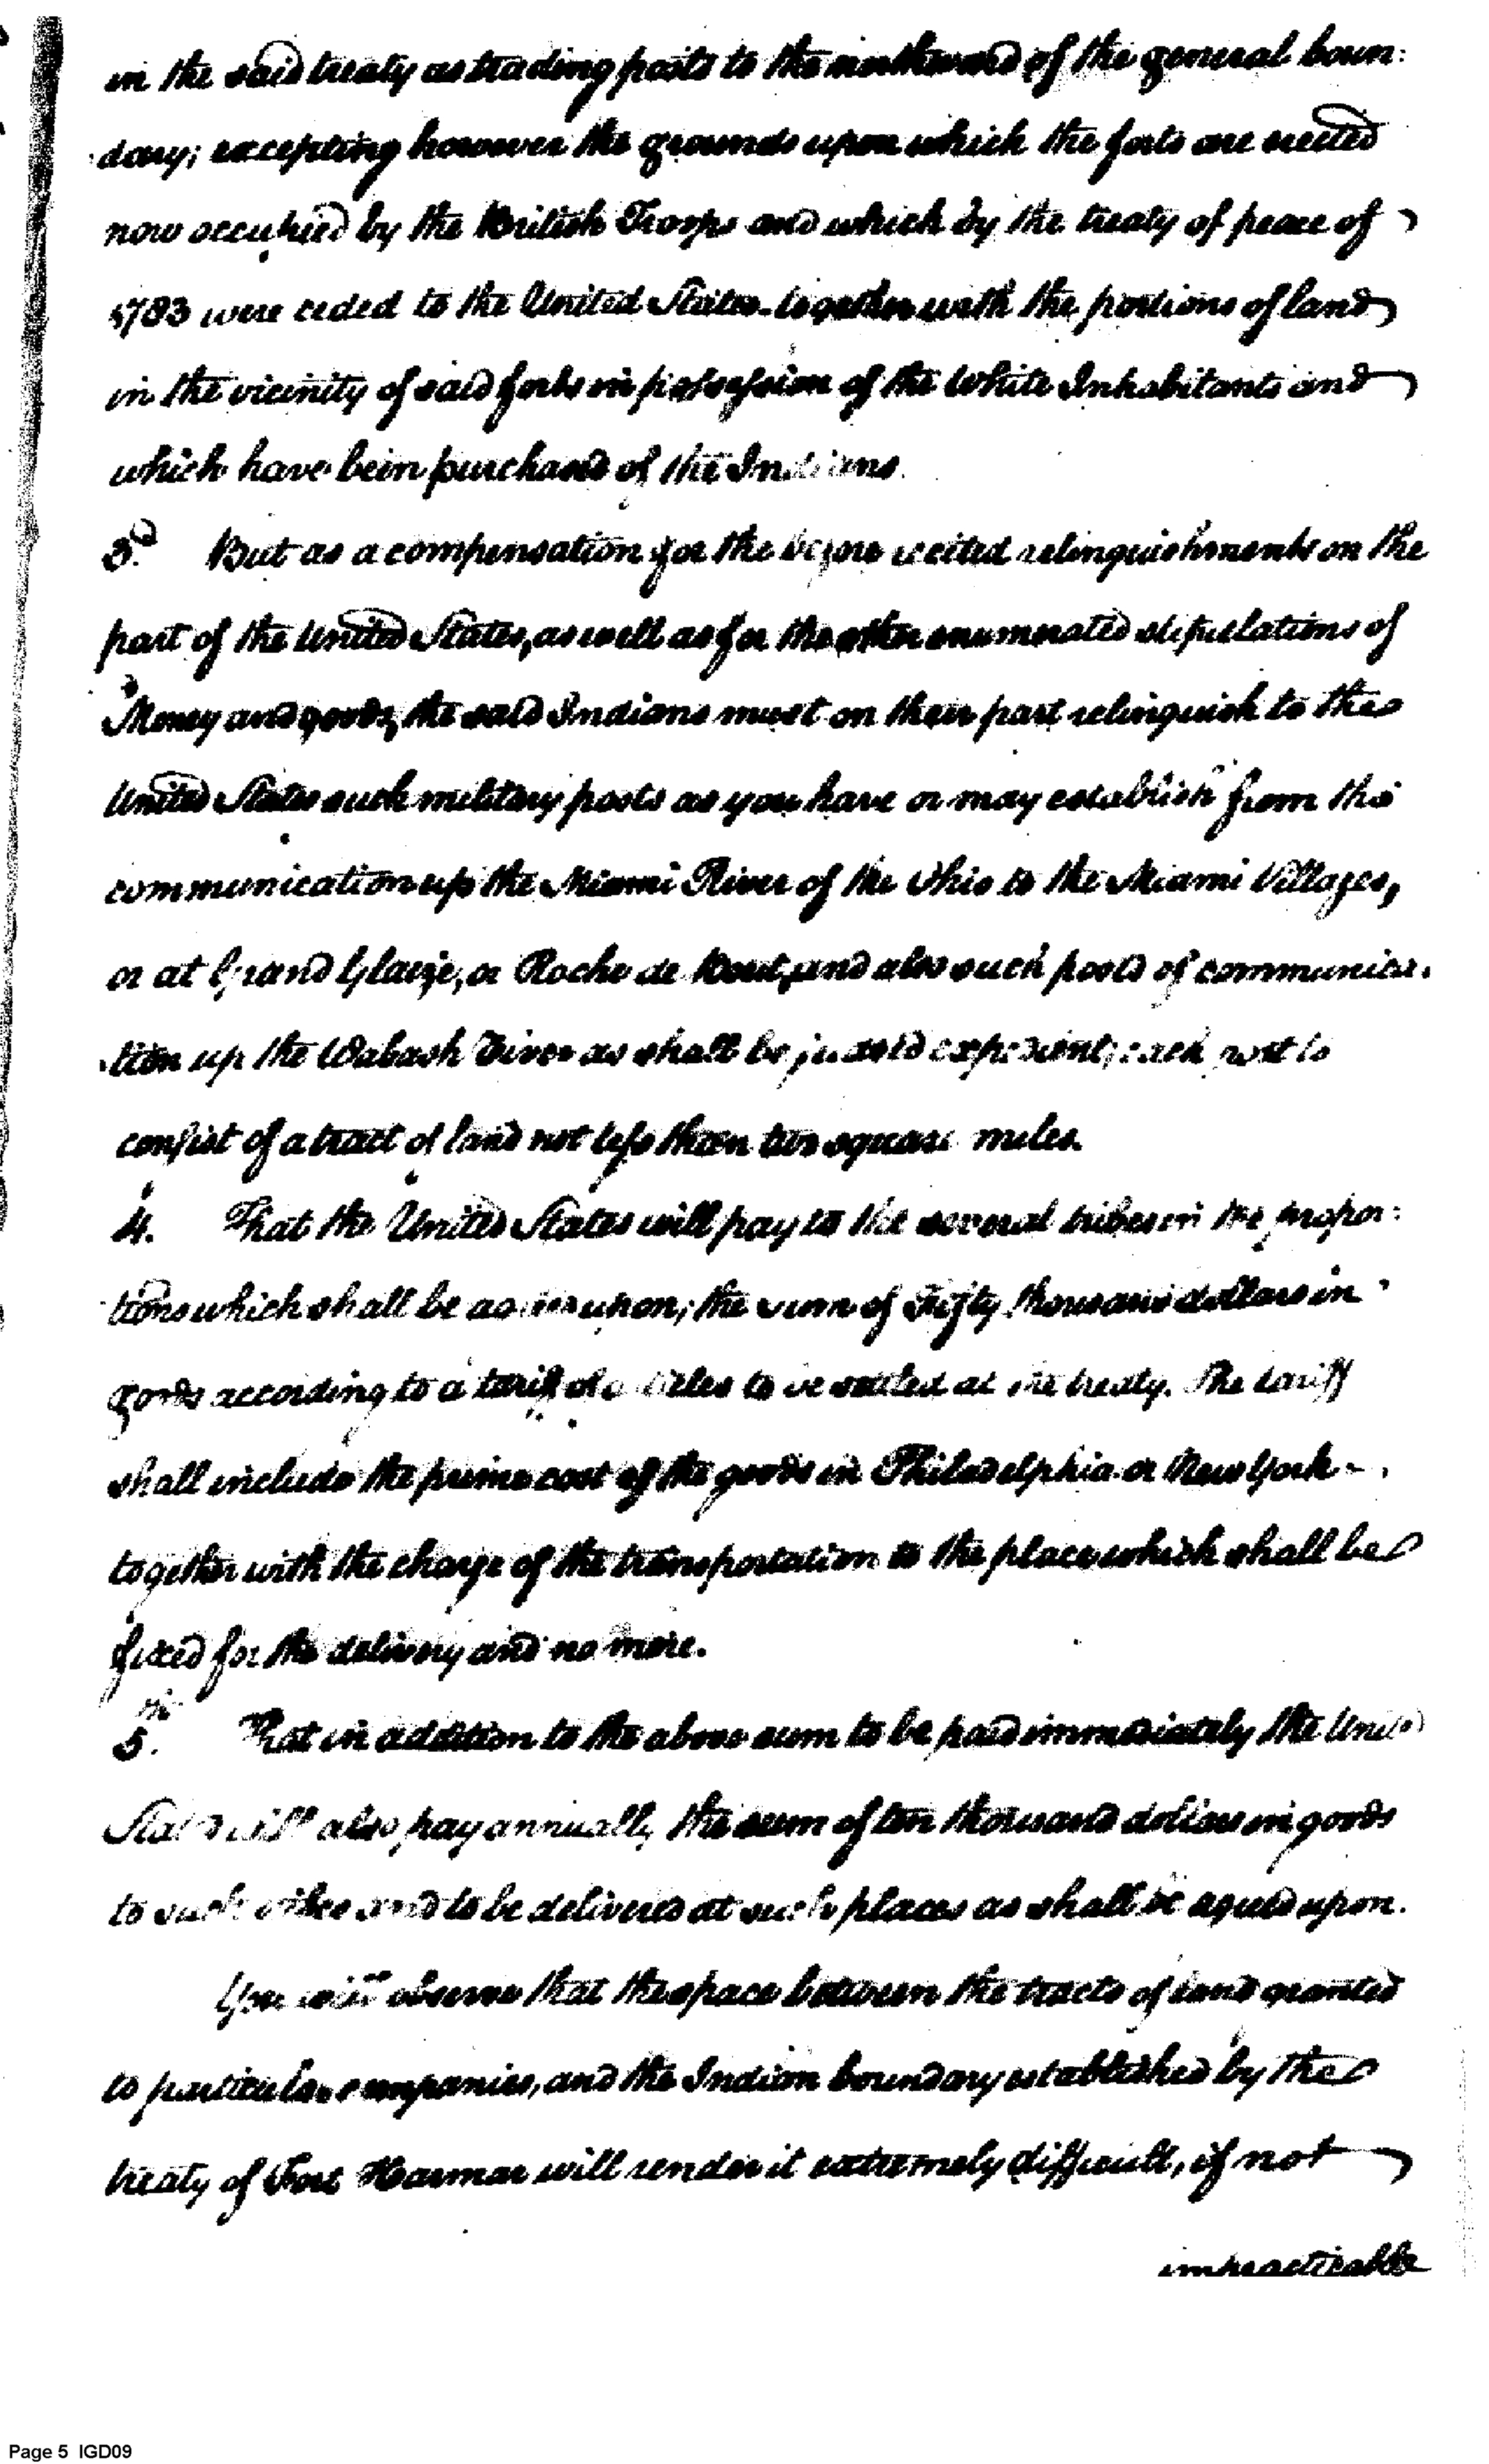 in the said treaty as trading posts to the northward of the general boun:
dary; excepting however the grounds upon which the forts are erected
now occupied by the British Troops and which by the treaty of peace of
1783 were ceded to the United States together with the portions of land
in the vicinity of said forts in possession of the White Inhabitants and
which have been purchased of the Indians.
3d. But as a compensation for the before recited relinquishments on the
part of the United States, as well as for the other enumerated stipulations of
Money and goods, the said Indians must on their part relinquish to the
United States such military posts as you have or may establish from the
communication up the Miami River of the Ohio to the Miami Villages,
or at Grand Glaize, or Roche de Bout, and also such posts of communica.
tion up the Wabash River as shall be judged expedient; each post to
consist of a tract of land not less than two square miles.
4. That the United States will pay to the several tribes in the propor:
tions which shall be agreed upon, the sum of Fifty thousand dollars in
goods according to a tariff of articles to be settled at the treaty. The tariff
shall include the prime cost of the goods in Philadelphia or New York -
together with the charge of the transportation to the place which shall be
fixed for the delivery and no more.
5th. That in addition to the above sum to be paid immediately the United
States will also pay annually the sum of ten thousand dollars in goods
to such tribes and to be delivered at such places as shall be agreed upon.
You will observe that the space between the tracts of land granted
to particular companies, and the Indian boundary established by the
treaty of Fort Harmar will render it extremely difficult, if not
impracticable
Page 5 IGD09